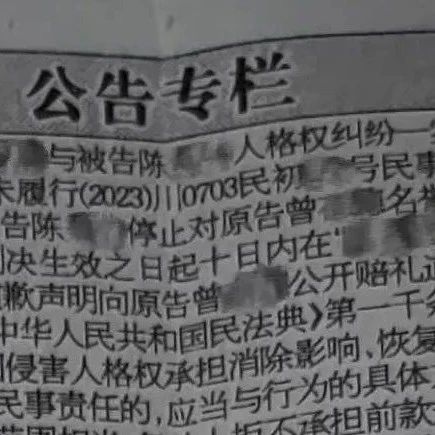 公告专栏
与被告陈 人格权纠纷一
未履行(2023)川0703民初 号民事
告陈 停止对原告曾 名誉
决生效之日起十日内在
歉声明向原告曾 公开赔礼道
中华人民共和国民法典》第一千条
侵害人格权承担消除影响、恢复
民事责任的,应当与行为的具体
拒不承担前款